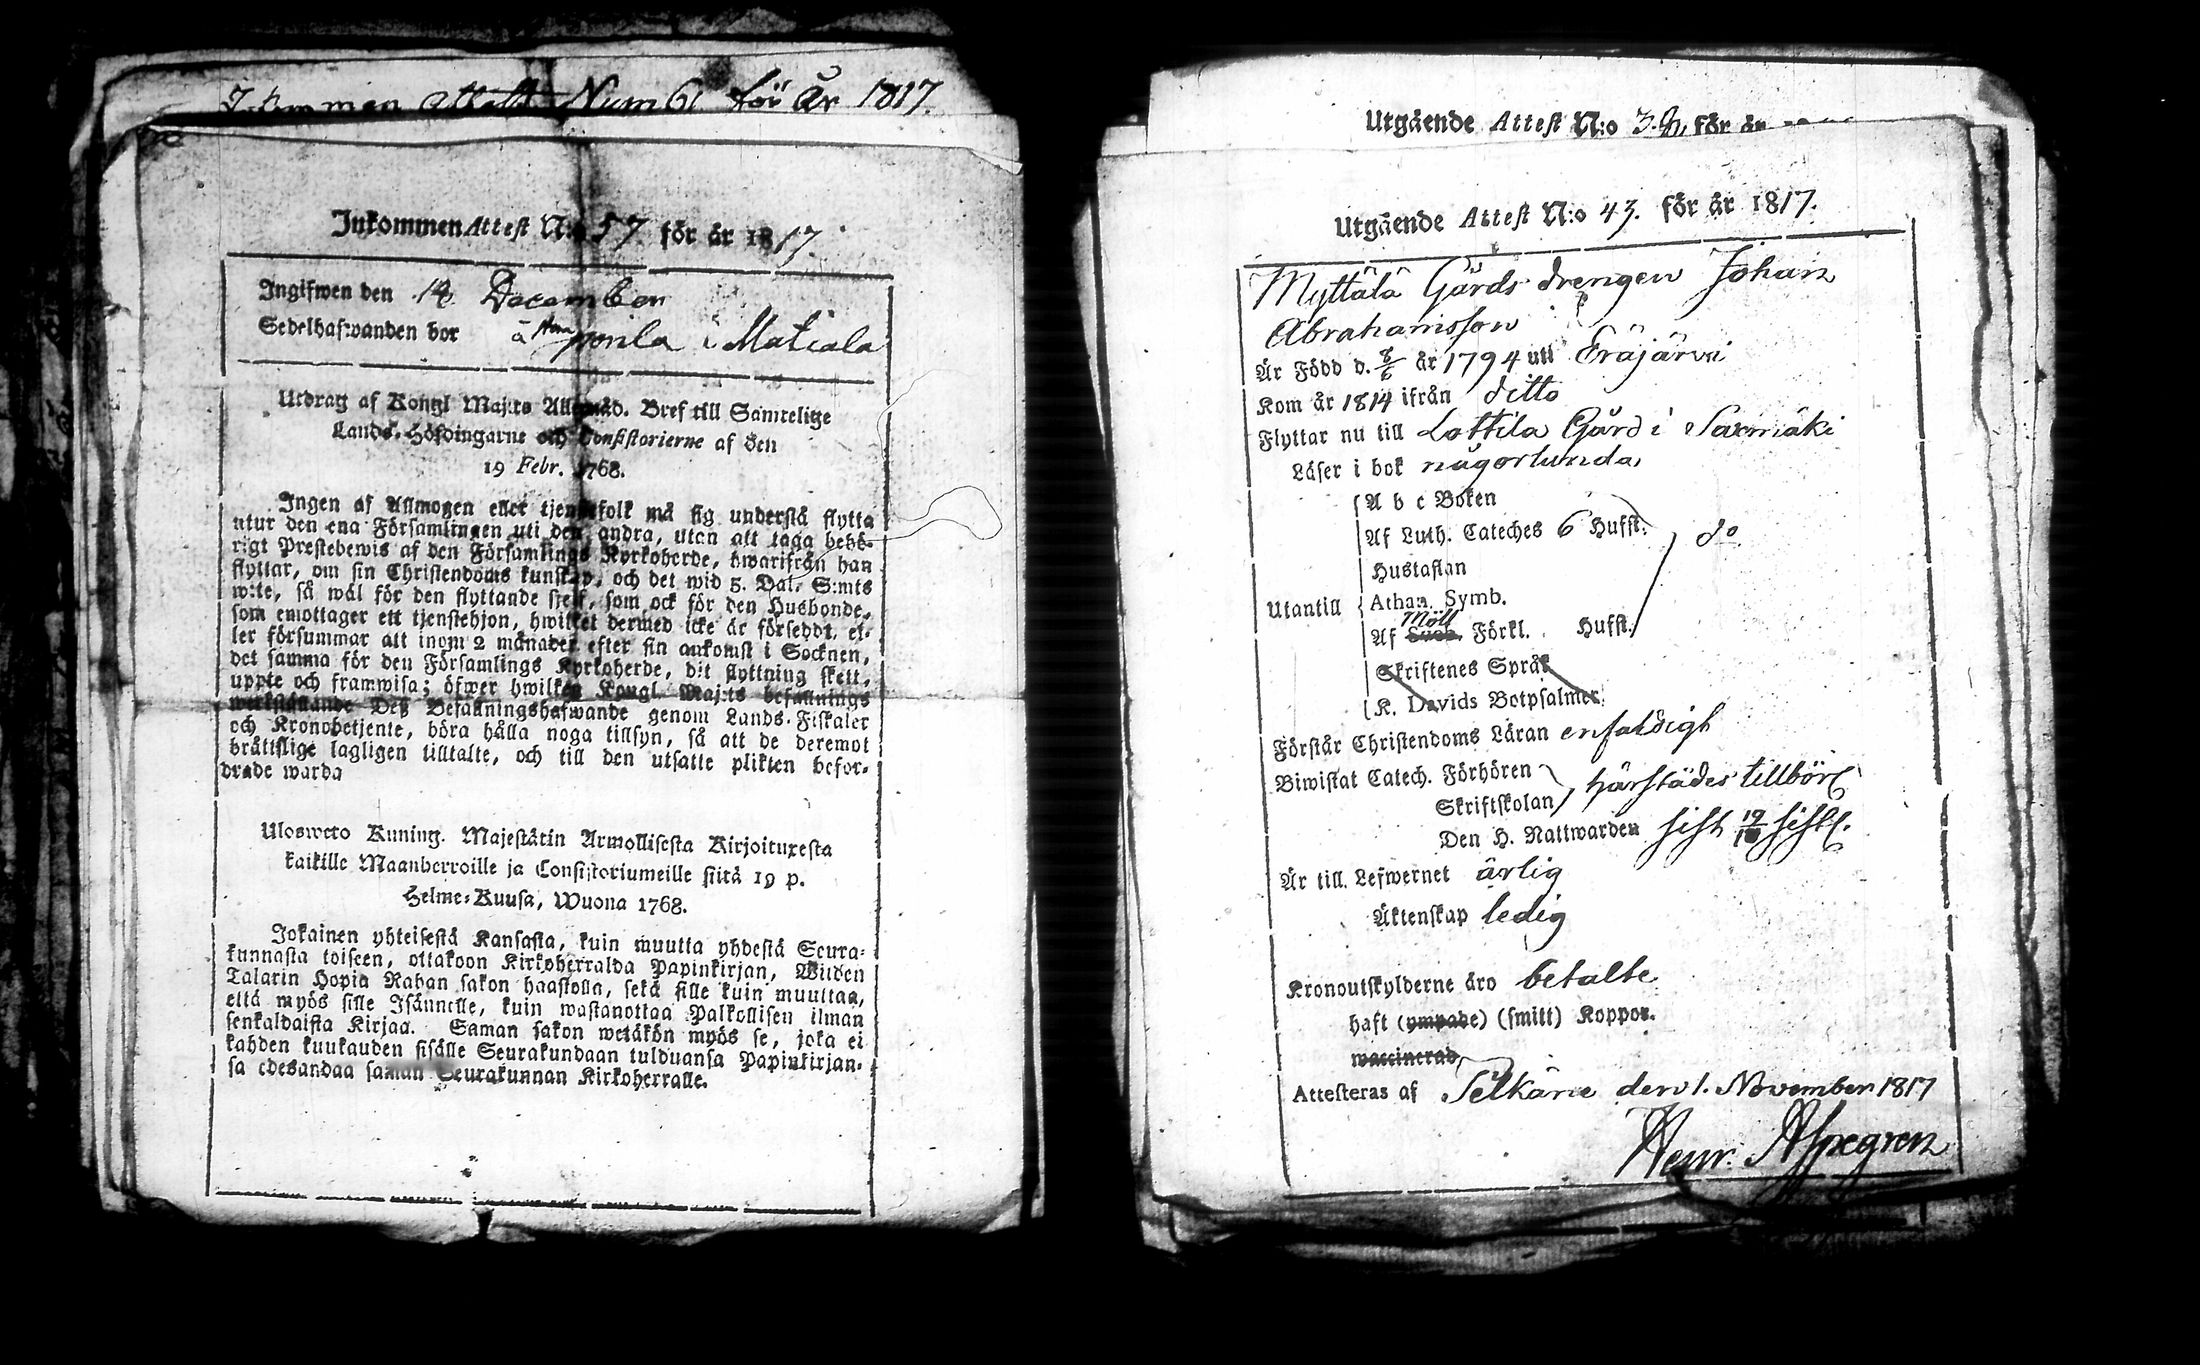 Inkommen attest Num 61 för År 1817.
Inkommen Attest N:o 57 för år 1817.
Ingifwen den 14 December
Sedelhafwanden bor å Anponila i Matiala
Utdrag af Kongl Maj:ts Allernåd. Bref till Samtelige
Lands-Höfdingarne och Consistorierne af den
19 Febr. 1768.
Ingen af Allmogen eller tjenstefolk må sig understå flytta
utur den ena Församlingen uti den andra, utan att taga behö-
rigt Prestebewis af den Församlings Kyrkoherde, hwarifrån han
flyttar, om sin Christendoms kunskap, och det wid 5. Dal. S:mts
wite, så wäl för den flyttande sjelf, som ock för den Husbonde,
som emottager ett tjenstehjon, hwilket dermed icke är försedt, el-
ler försummar att inom 2 månader efter sin ankomst i Socknen,
det samma för den Församlings Kyrkoherde, dit flyttning skett,
uppte och framwisa; öfwer hwilken Kongl. Maj:ts befallnings
werkställande Deß Befallningshafwande genom Lands-Fiskaler
och Kronobetjente, böra hålla noga tillsyn, så att de deremot
bråttslige lagligen tilltalte, och till den utsatte plikten befor-
drade warda
Ulosweto Kuning. Majestätin Armollisesta Kirjoituxesta
kaikille Maanherroille ja Consistoriumeille siitä 19 p.
Helme-Kuusa, Wuona 1768.
Jokainen yhteisestä Kansasta, kuin muutta yhdestä Seura-
kunnasta toiseen, ottakoon Kirkoherralda Papinkirjan, Wiiden
Talarin Hopia Rahan sakon haastolla, sekä sille kuin muuttaa,
että myös sille Isännelle, kuin wastanottaa Palkollisen ilman
senkaldaista Kirjaa. Saman sakon wetäkön myös se, joka ei
kahden kuukauden sisälle Seurakundaan tulduansa Papinkirjan-
sa edesandaa saman Seurakunnan Kirkoherralle.
Utgående Attest N:o 39, för år
Utgående Attest N:o 43. för år 1817.
Myttälä Gårds drengen Johan
Abrahamsson
Är Född d. 8/6 år 1794 uti Eräjärvi
Kom år 1814 ifrån ditto
Flyttar nu till Lottila Gård i Saxmäki
Läser i bok någorlunda,
A b c Boken
Af Luth. Cateches 6 Hufst. do
Hustaflan
Utantill Athan. Symb.
Möll
Af Sweb. Förkl. Hufst.
Skriftenes Språk
K. Davids Botpsalmer.
Förstår Christendoms Läran enfaldigt
Biwistat Catech. Förhören
Skriftskolan härstädes tillbörl
Den H. Nattwarden sist 19/10 sistl.
Är till. Lefwernet ärlig
Äktenskap ledig
Kronoutskylderne äro betalte
haft (ympade) (smitt) Koppor.
waccinerad
Attesteras af Selkäne den 1. November 1817
Henr. Aspegren